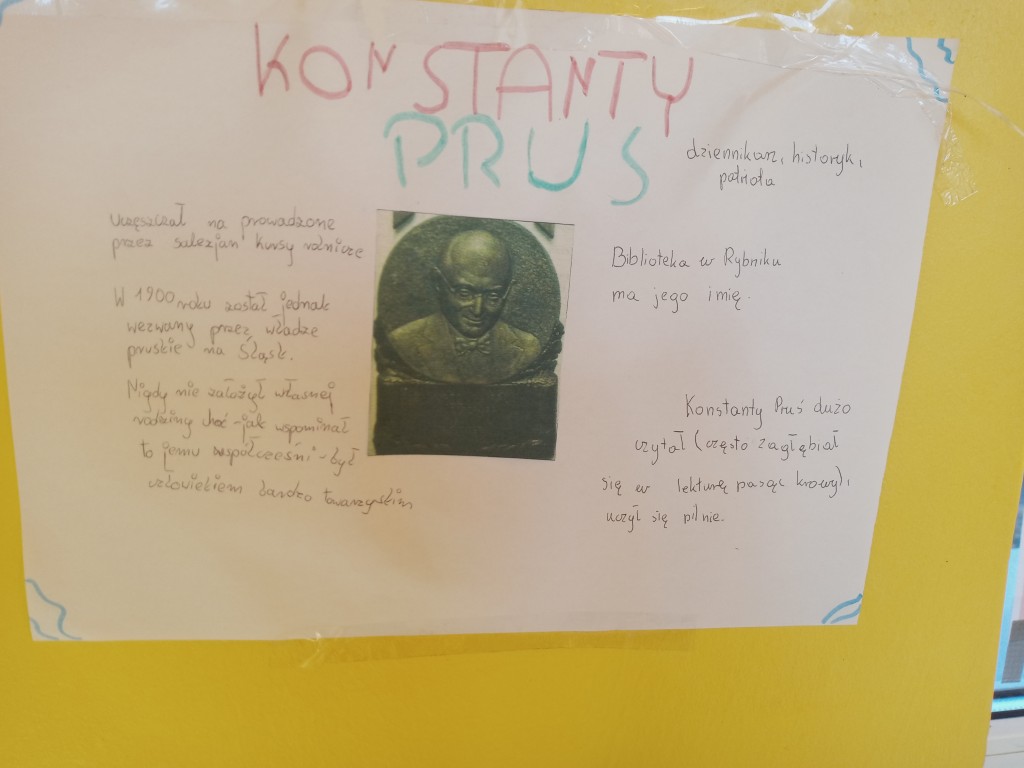 KONSTANTY
PRUS
dziennikarz, historyk,
patriota
Uczęszczał na prowadzone
przez salezjan kursy rolnicze
W 1900 roku został jednak
wezwany przez władze
pruskie na Śląsk.
Nigdy nie założył własnej
rodziny choć - jak wspominał
to jemu współcześni - był
człowiekiem bardzo towarzyskim
Biblioteka w Rybniku
ma jego imię.
Konstanty Pruś dużo
czytał (często zagłębiał
się w lekturę pasąc krowy),
uczył się pilnie.